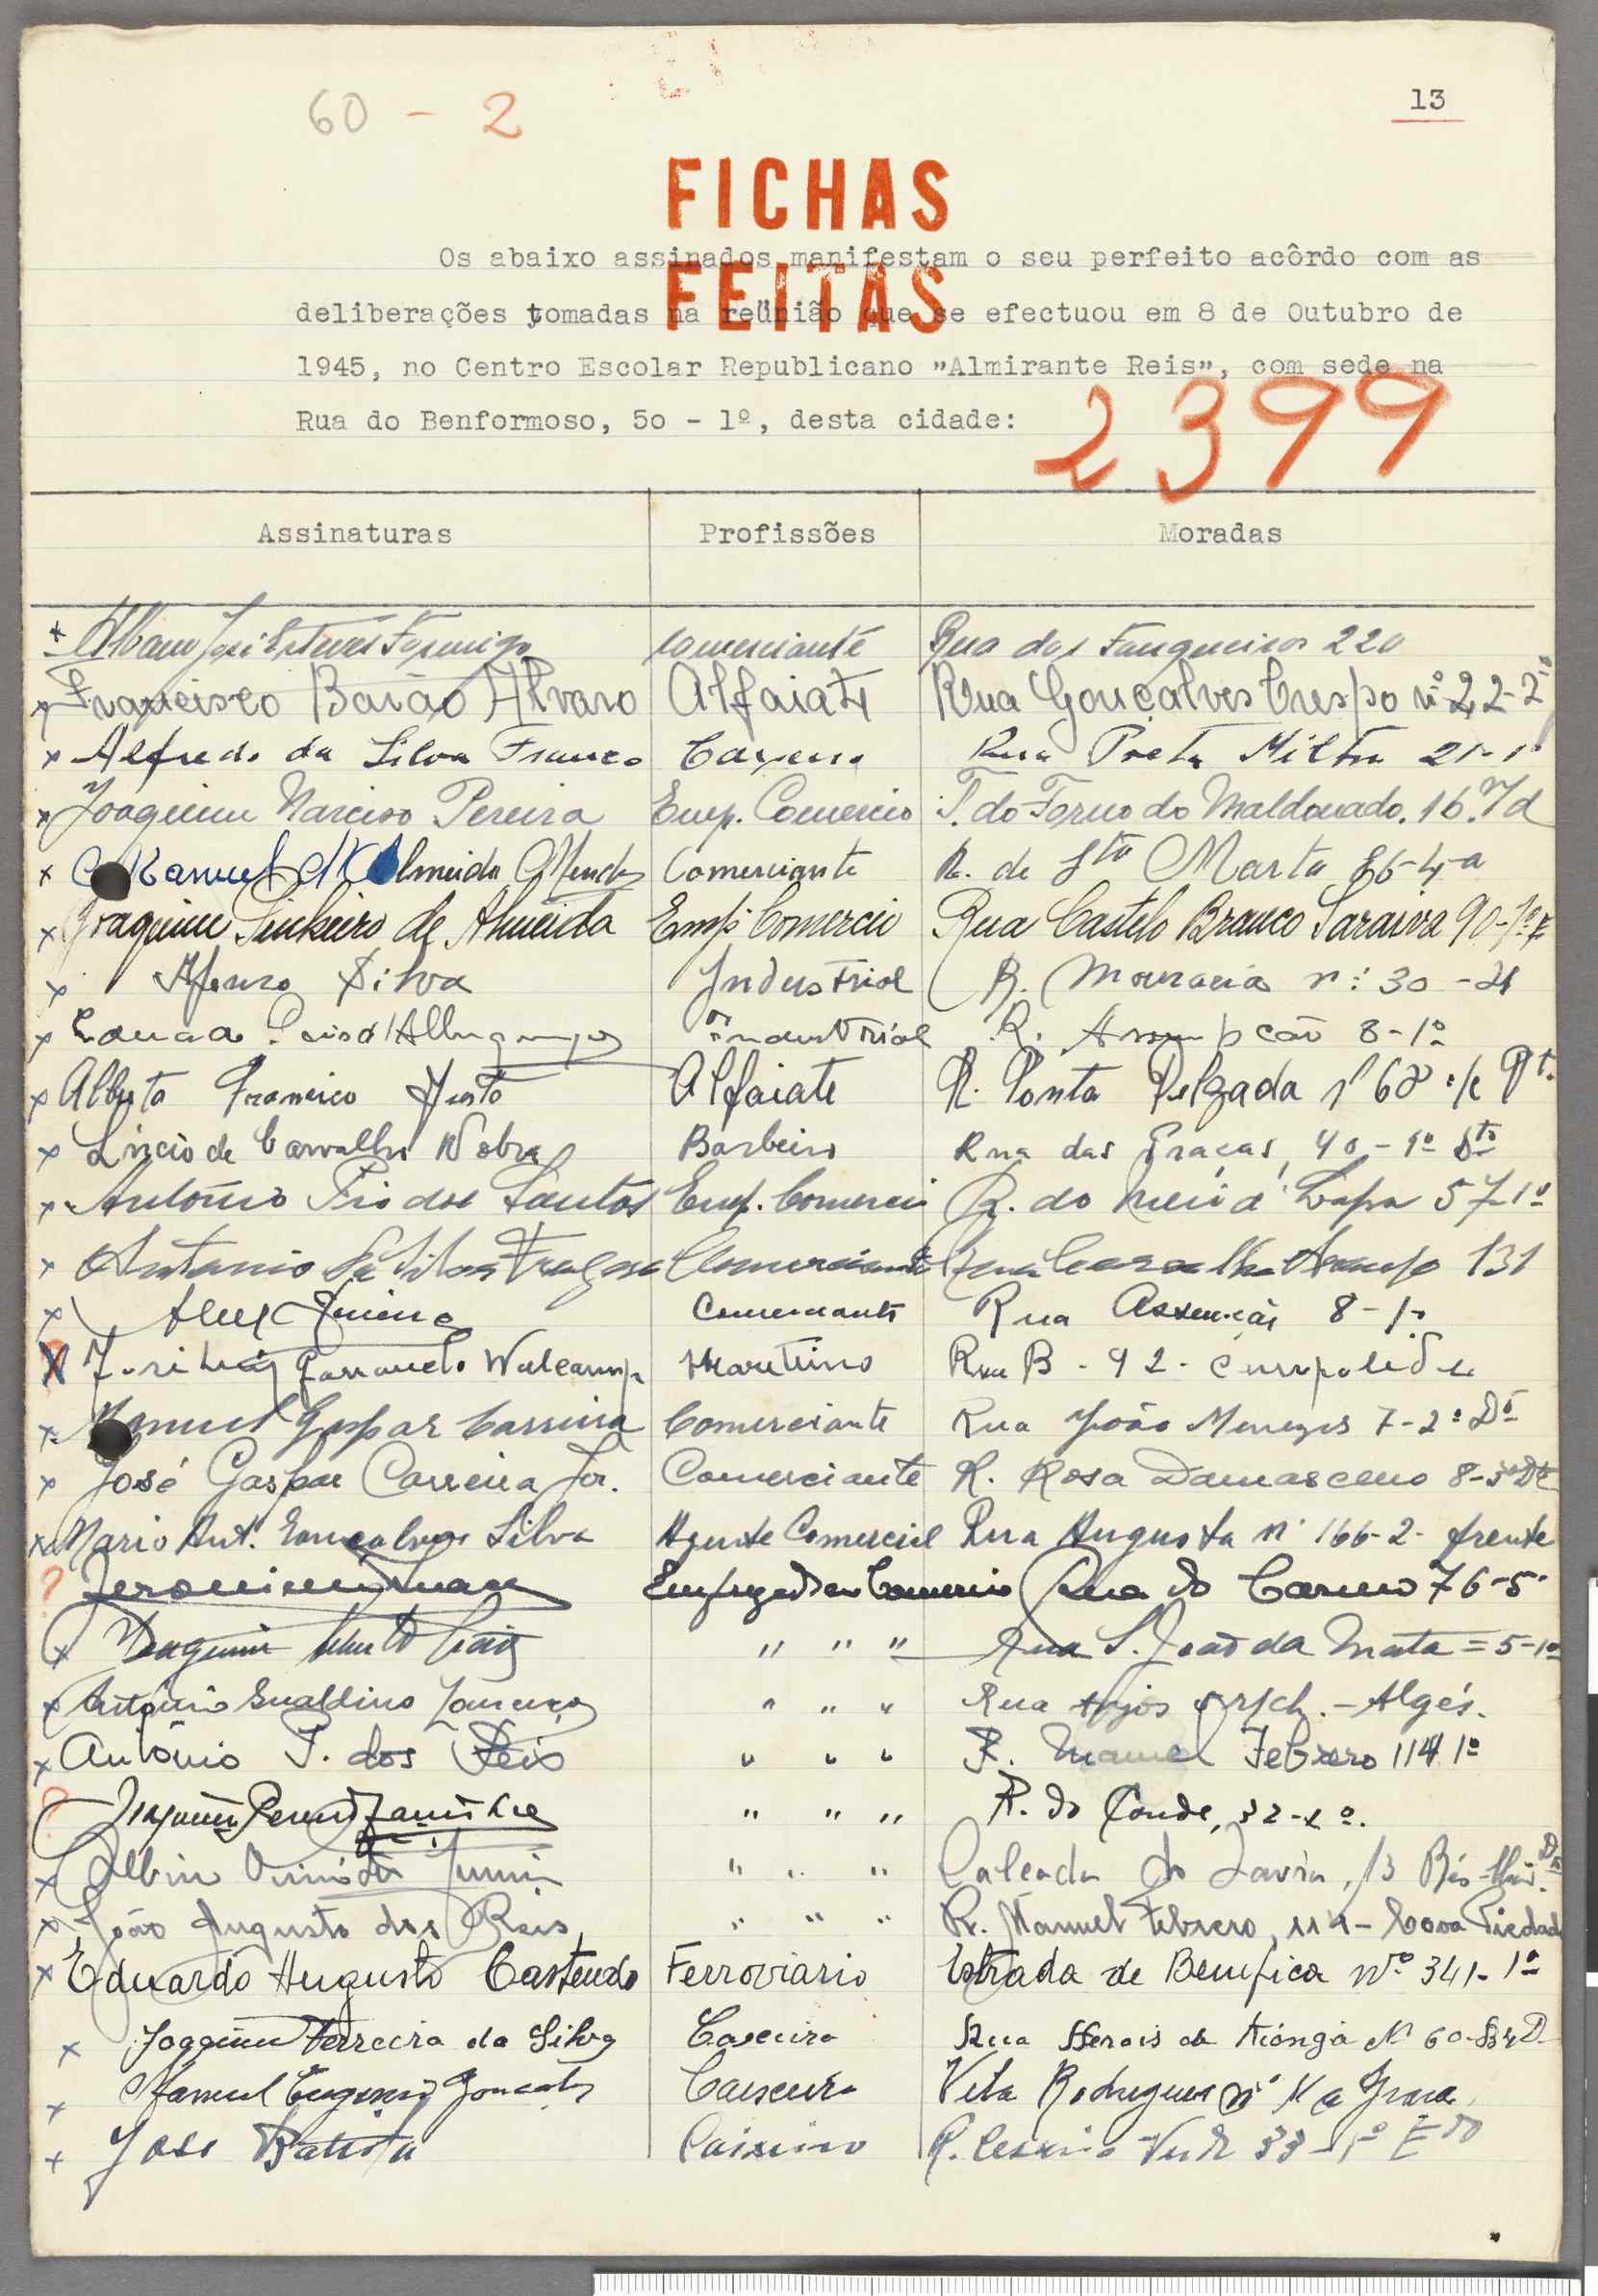 60 - 2
13
FICHAS
FEITAS
Os abaixo assinados manifestam o seu perfeito acôrdo com as
deliberações tomadas na reünião que se efectuou em 8 de Outubro de
1945, no Centro Escolar Republicano "Almirante Reis", com sede na
Rua do Benformoso, 50 - 1º, desta cidade:
2399
Assinaturas Profissões Moradas
x José Esteves comerciante Rua dos Fanqueiros 220
x Francisco Baião Alvaro Alfaiate Rua Gonçalves Crespo nº 22-2º
x Alfredo da Silva Franco Rua Poeta Milton 21-1º
x Joaquim Narciso Pereira Emp. Comercio T. do Forno do Maldonado. 16.
x Manuel d'Almeida Mendes Comerciante R. de Stª Marta 86-4-a
x Joaquim Pinheiro de Almeida Emp. Comercio Rua Castelo Branco Saraiva 90-
x Afonso Silva Industrial R. Mouraria nº 30
x Industrial R. Assumpcão 8-1º
x Alberto Francisco Alfaiate R. Ponta Delgada nº 68
x Lúcio de Carvalho Nobre Barbeiro Rua das Praças, 40-1º Dtº
x António Pio dos Santos Emp. Comercio R. do Meio à Lapa 57 1º
x Antonio da Silva Fragoso Comerciante Rua Carvalho Araujo 131
x Comerciante Rua Assunção 8-1º
x Maritimo Rua B - 92 -
x Manuel Gaspar Carreira Comerciante Rua João Menezes 7-2º Dtº
x José Gaspar Carreira Jor. Comerciante R. Rosa Damasceno 8-3º Dt
x Mario Ant. Gonçalves Silva Agente Comercial Rua Augusta nº 166-2- frente
? Empregado no Comercio Rua do Carmo 76-5º
x Joaquim " " " Rua S. João da Mata = 5-1º
x António Gualdino Lourenço " " " Rua r/ch. - Algés.
x António P. dos Reis " " " R. Manuel Febrero 114 1º
? Joaquim " " " R. do Conde, 32-
x " " " Calçada do Lavra, 13
x João Augusto dos Reis " " " R. Manuel Febrero, 114 - Cova Piedade
x Eduardo Augusto Castendo Ferroviario Estrada de Benfica Nº 341-1º
x Joaquim Ferreira da Silva Caxeiro Rua Herois de Kionga Nº 60-
x Manuel Eugenio Gonçalves Caixeiro Vila Rodrigues nº
x José Batista Caixeiro R. Cesario Verde 33-1º Edo